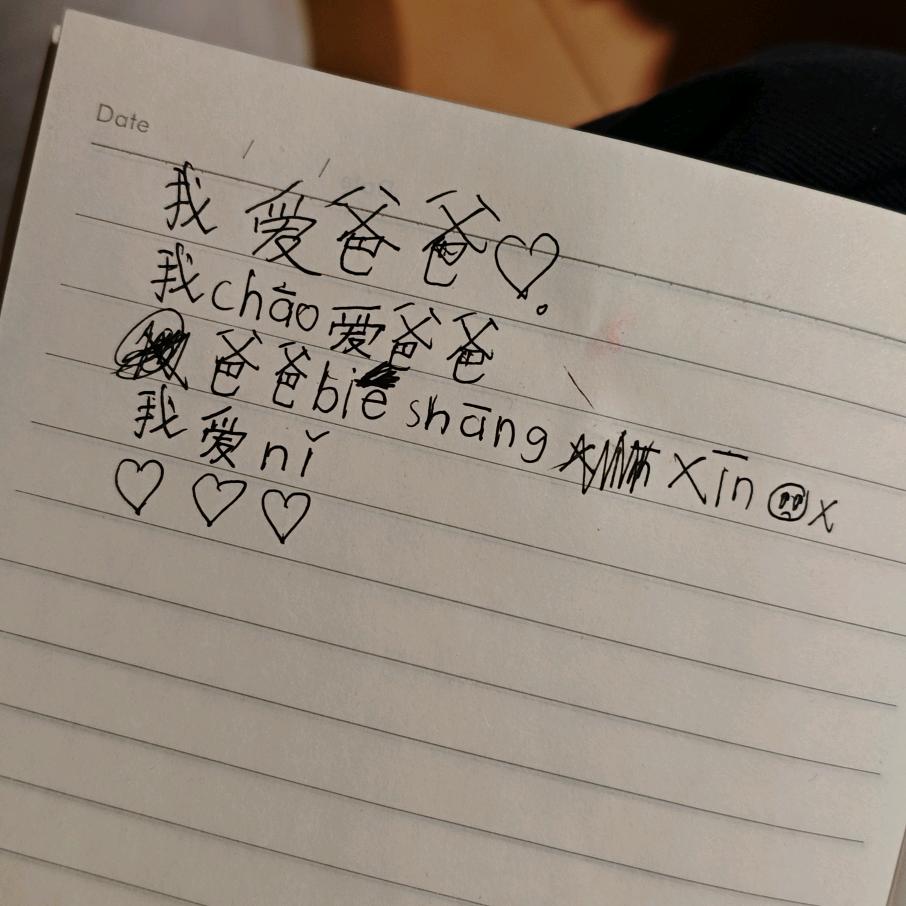 Date / /
我爱爸爸♡。
我chāo爱爸爸
爸爸bié shāng xīn☹x
我爱nǐ
♡♡♡